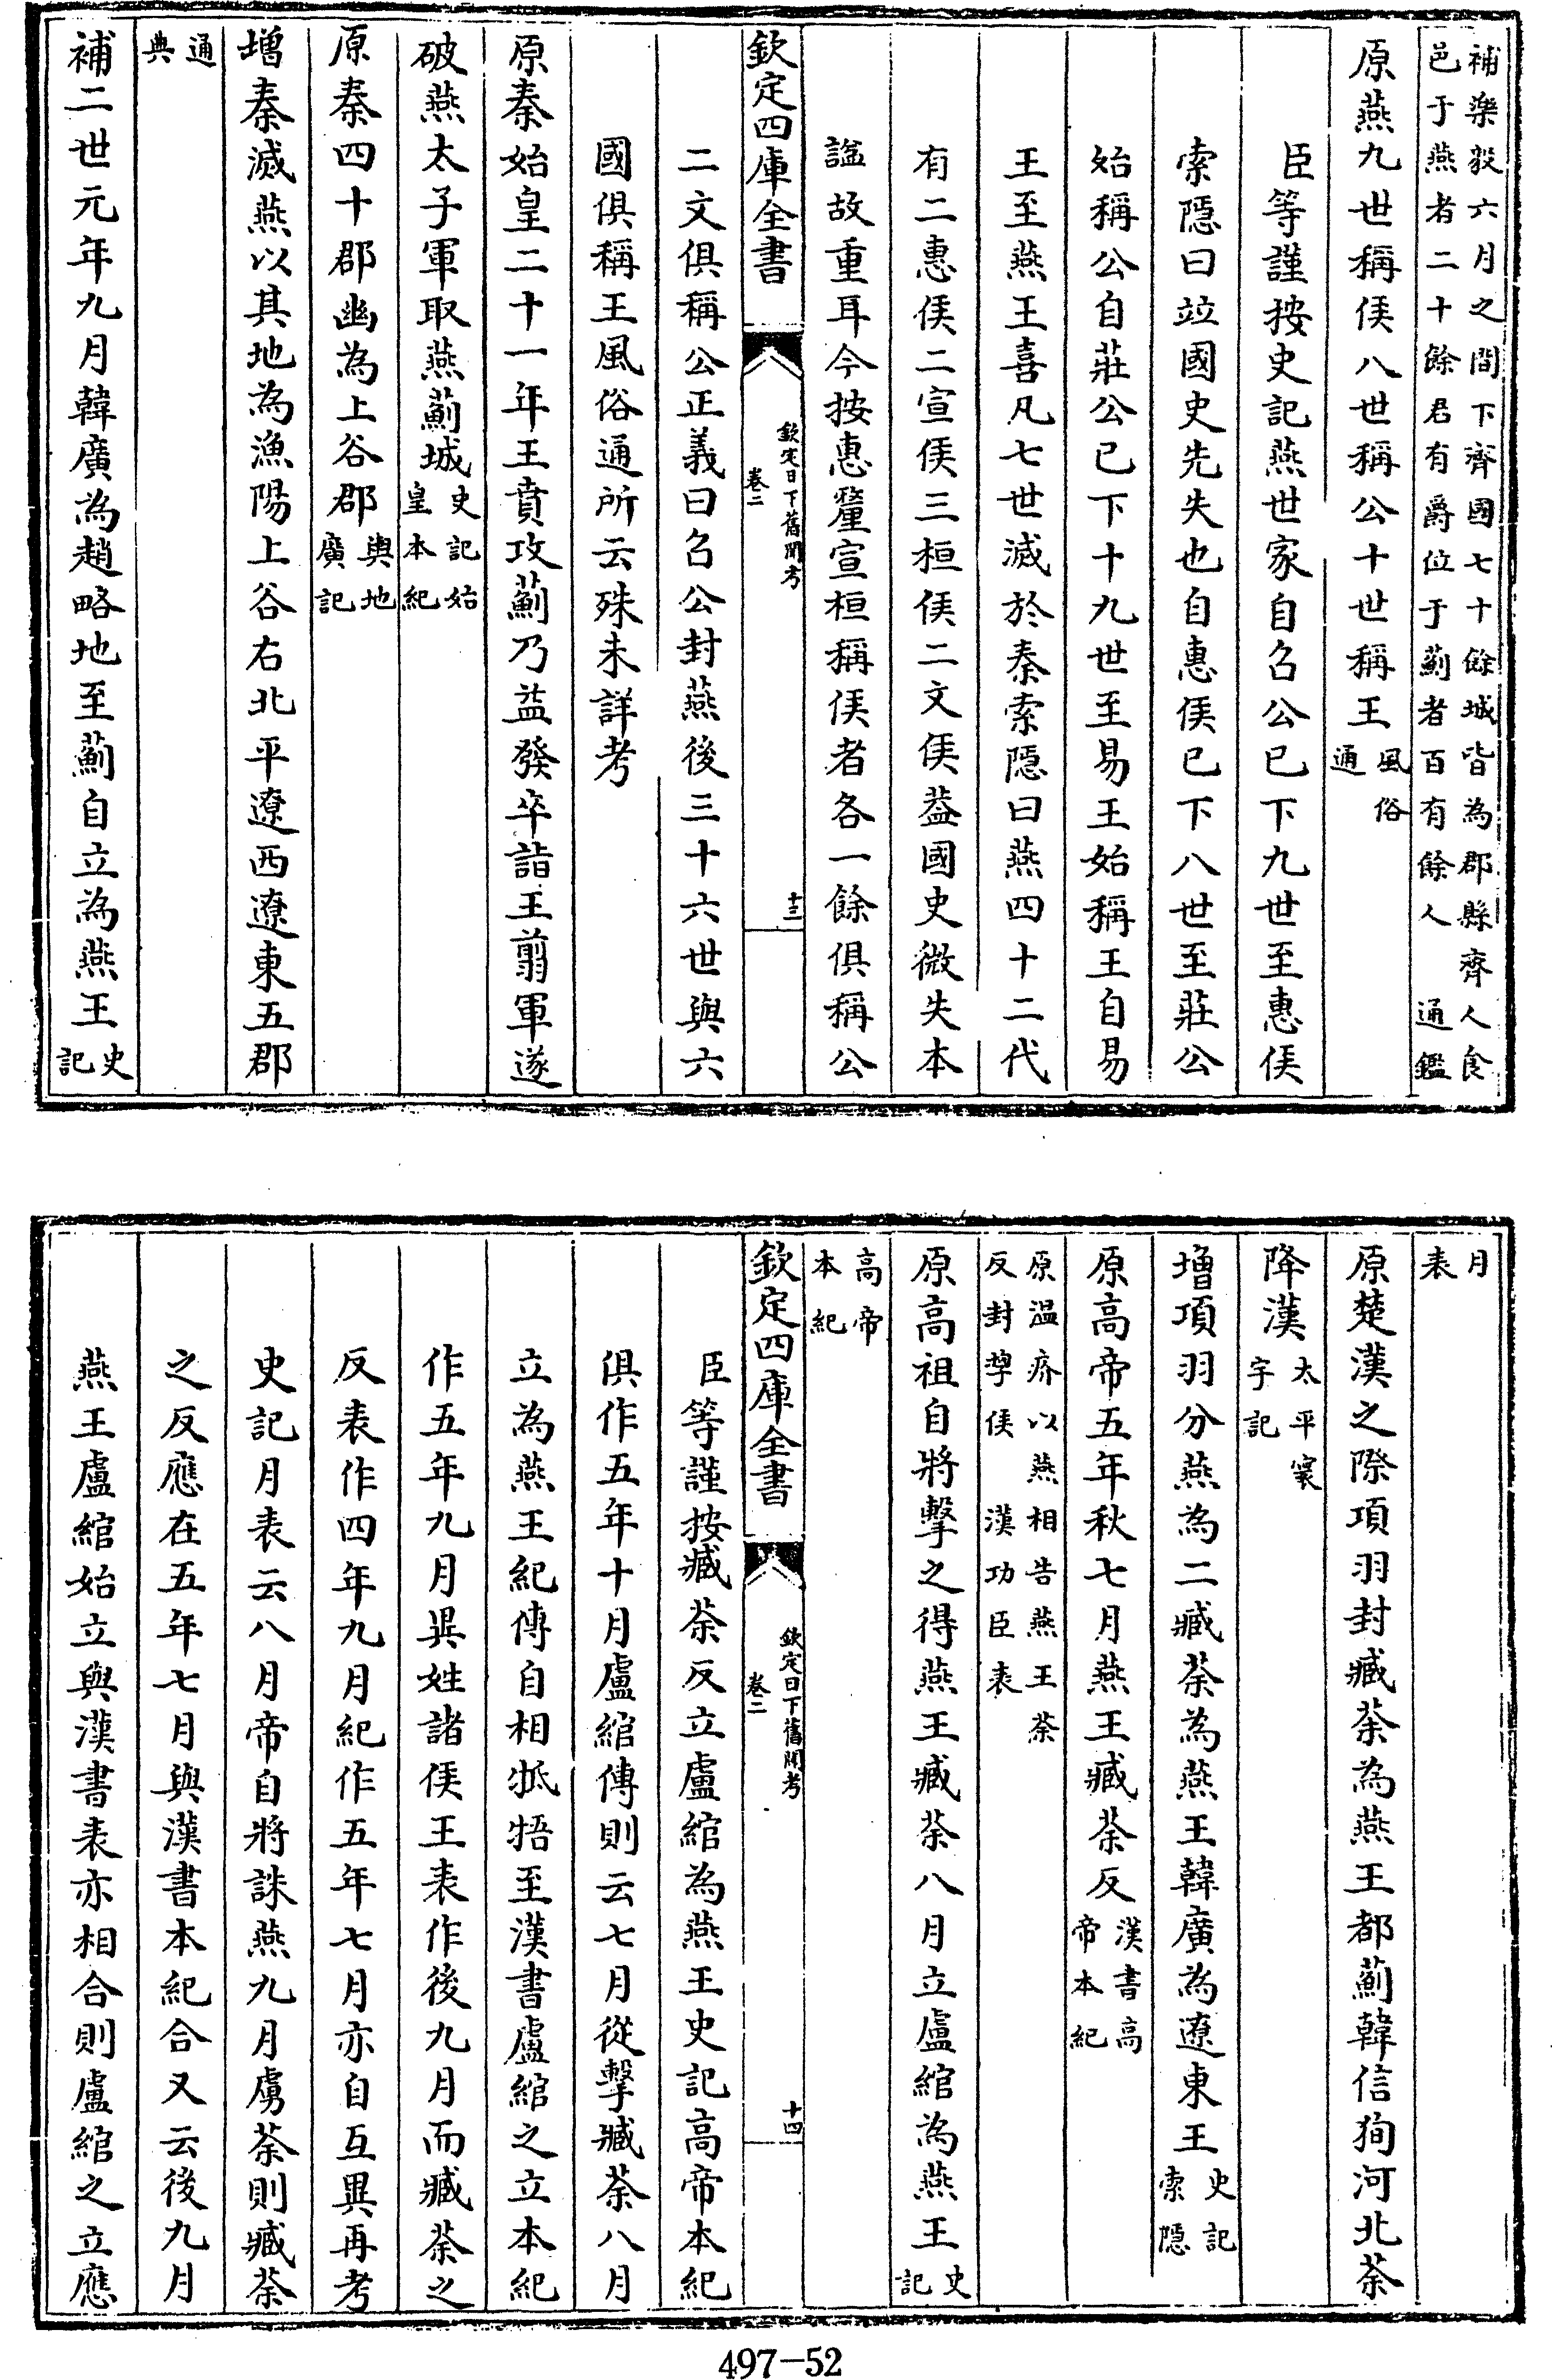 補樂毅六月之間下齊國七十餘城皆為郡縣齊人食
邑于燕者二十餘君有爵位于薊者百有餘人 通鑑
原燕九世稱侯八世稱公十世稱王風俗
通
臣等謹按史記燕世家自召公已下九世至惠侯
索隱曰竝國史先失也自惠侯已下八世至莊公
始稱公自莊公已下十九世至易王始稱王自易
王至燕王喜凡七世滅於秦索隱曰燕四十二代
有二惠侯二宣侯三桓侯二文侯葢國史微失本
諡故重耳今按惠釐宣桓稱侯者各一餘俱稱公
欽定四庫全書
欽定日下舊聞考
卷二
十三
二文俱稱公正義曰召公封燕後三十六世與六
國俱稱王風俗通所云殊未詳考
原秦始皇二十一年王賁攻薊乃益發卒詣王翦軍遂
破燕太子軍取燕薊城史記始
皇本紀
原秦四十郡幽為上谷郡輿地
廣記
增秦滅燕以其地為漁陽上谷右北平遼西遼東五郡
通
典
補二世元年九月韓廣為趙略地至薊自立為燕王史
記
月
表
原楚漢之際項羽封臧荼為燕王都薊韓信狥河北荼
降漢太平寰
宇記
增項羽分燕為二臧荼為燕王韓廣為遼東王史記
索隱
原高帝五年秋七月燕王臧荼反漢書高
帝本紀
原温疥以燕相告燕王荼
反封㧱侯 漢功臣表
原高祖自將擊之得燕王臧荼八月立盧綰為燕王史
記
高帝
本紀
欽定四庫全書
欽定日下舊聞考
卷二
十四
臣等謹按臧荼反立盧綰為燕王史記高帝本紀
俱作五年十月盧綰傳則云七月從擊臧荼八月
立為燕王紀傳自相牴牾至漢書盧綰之立本紀
作五年九月異姓諸侯王表作後九月而臧荼之
反表作四年九月紀作五年七月亦自互異再考
史記月表云八月帝自將誅燕九月虜荼則臧荼
之反應在五年七月與漢書本紀合又云後九月
燕王盧綰始立與漢書表亦相合則盧綰之立應
497-52